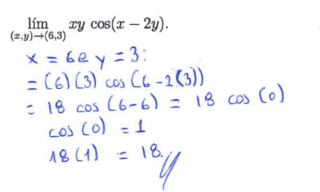 lím xy cos(x − 2y).
(x,y)→(6,3)
x = 6 e y = 3:
= (6)(3) cos(6-2(3))
= 18 cos (6-6) = 18 cos (0)
cos (0) = 1
18 (1) = 18.